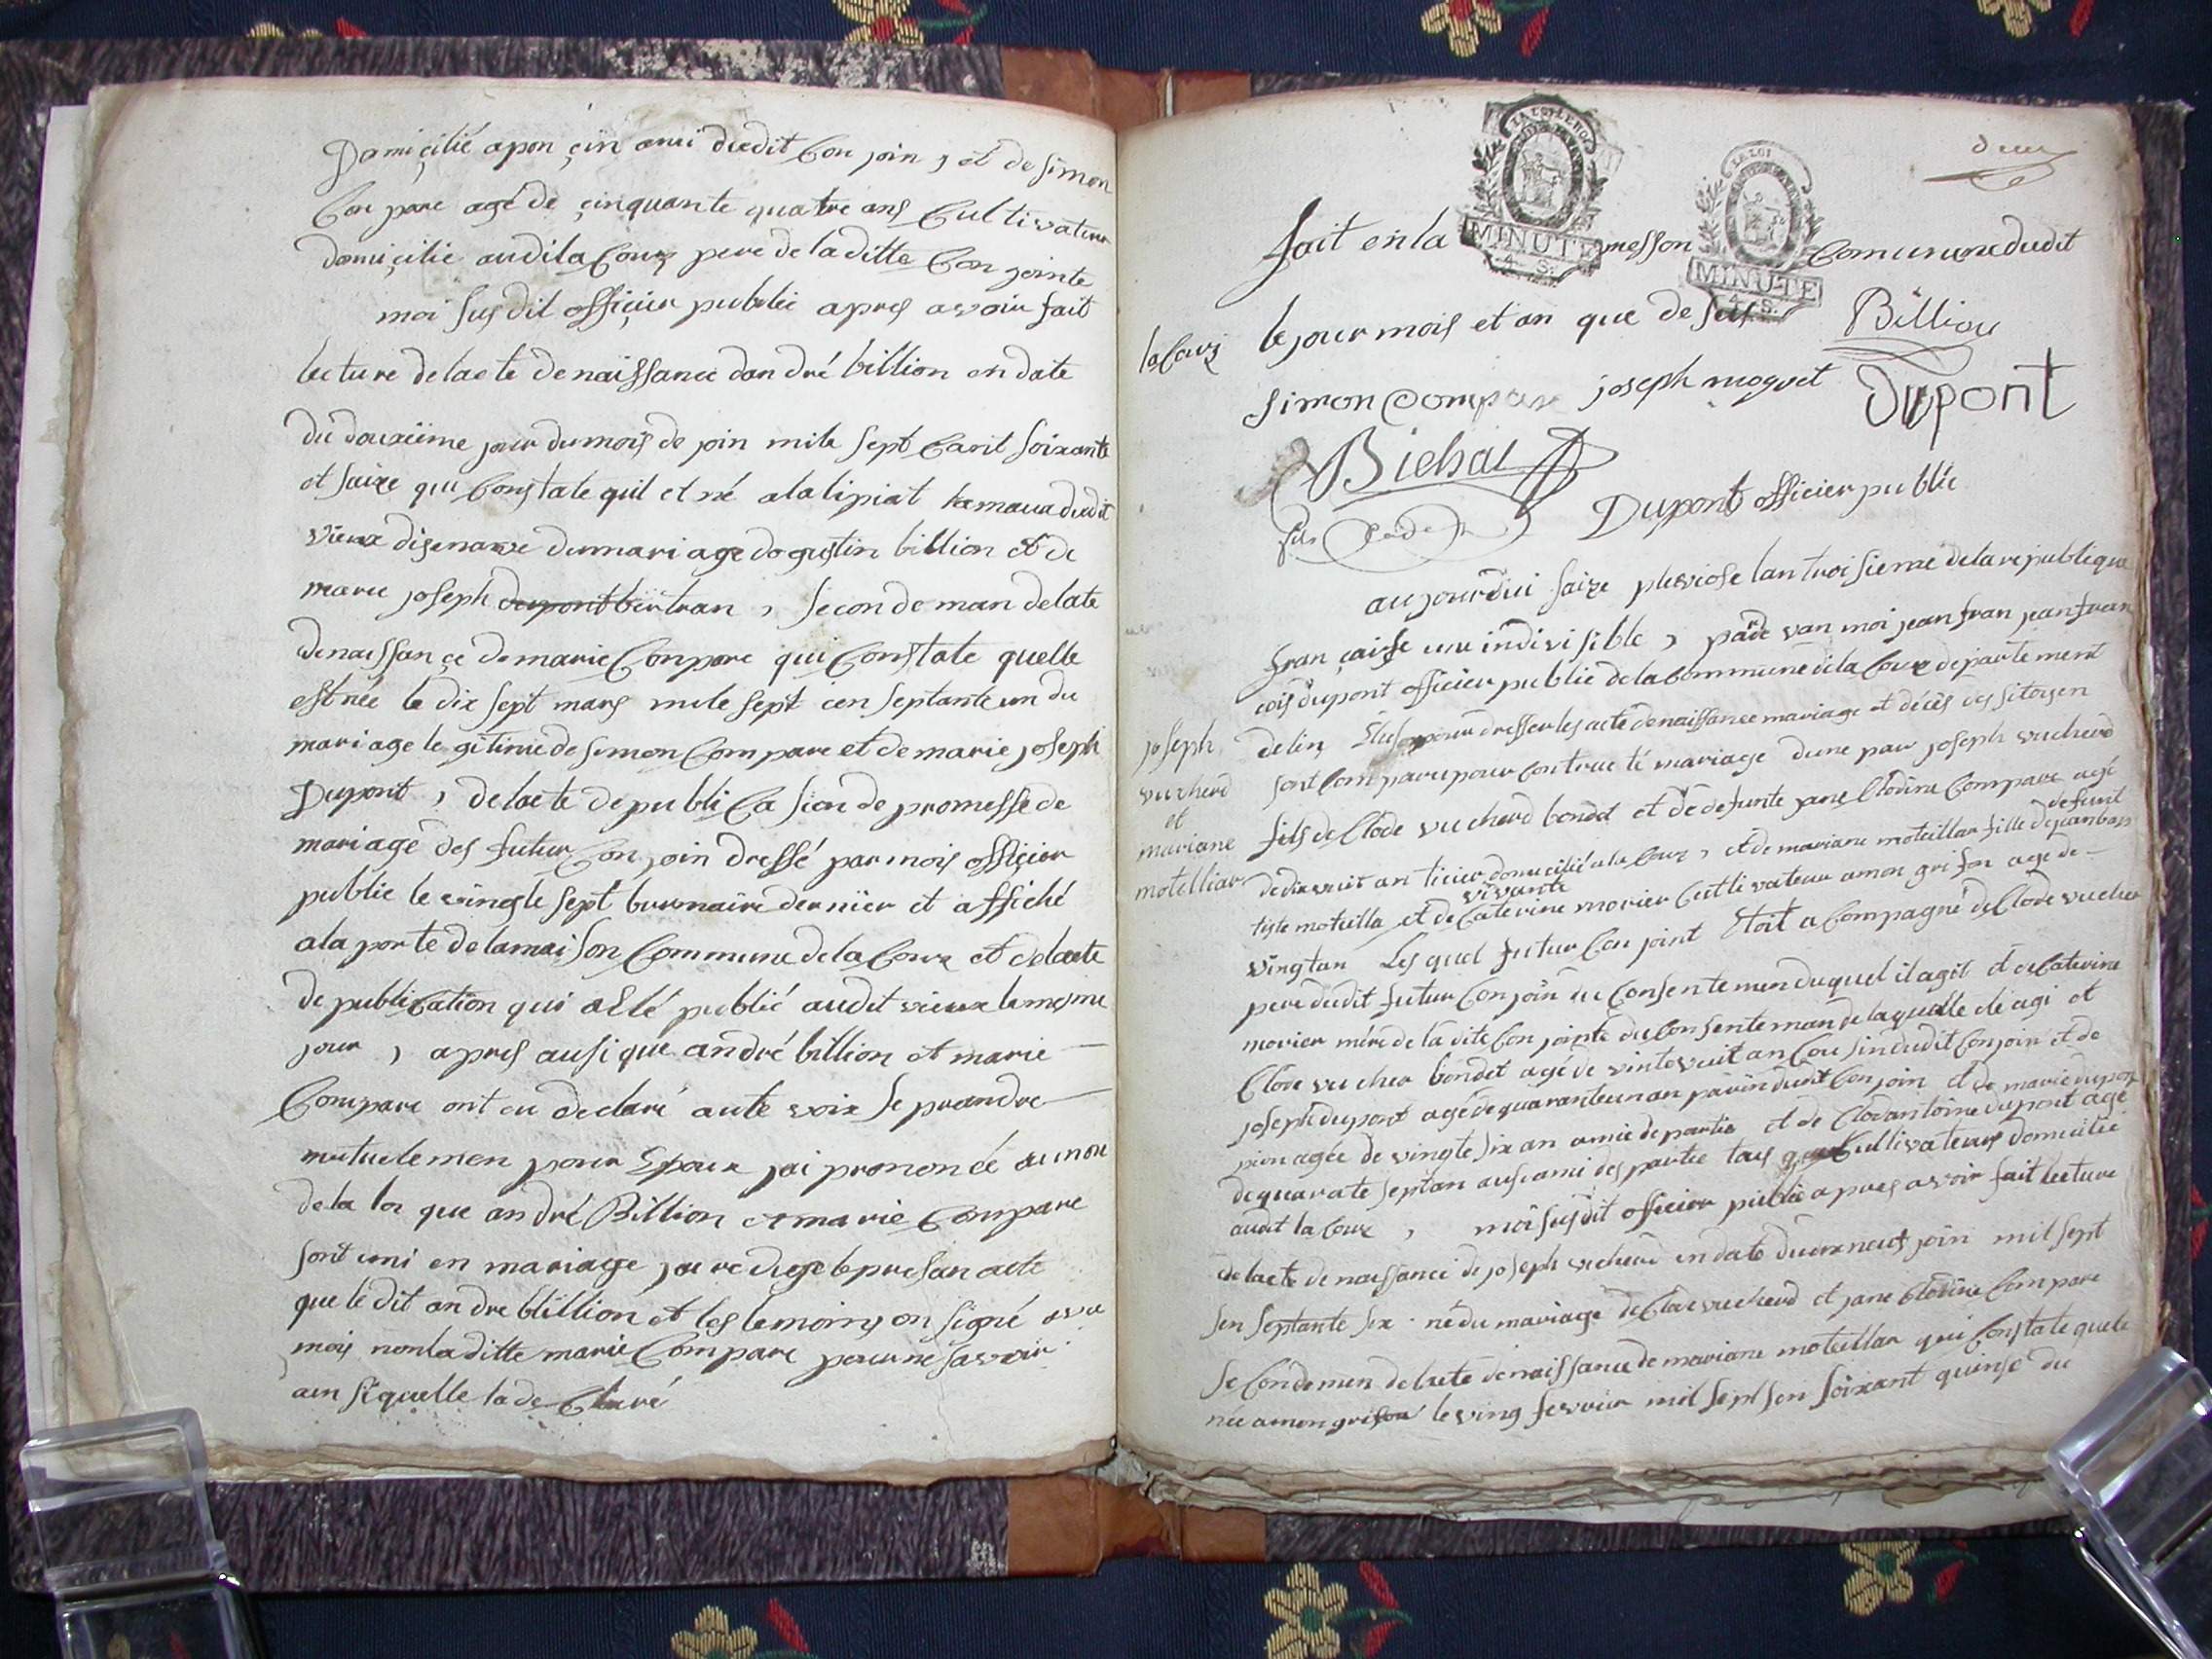 Domiçilié apon çin ami dudit Conjoin, et de simon
Conpare agé de çinquante quatre ans Cultivateur
domiçilié audi la Coux pere de laditte Conjointe
moi susdit offiçier public apres avoir fait
lecture de lacte de naissance dandré billion en date
du douxiime jour du mois de join mile sept Cant soixante
et saize qui Constate quil et né a dudit
vieux disenave du mariage dogustin billion et de
marie joseph bertran, secondeman de late
de naissançe de marie Conpare qui Constate quelle
est née le dix sept mars mile sept cen septante un du
mariage legitime de simon Compare et de marie joseph
Dupont, de lacte de publiCasion de promesse de
mariage des futur Conjoin dressé par mois offiçier
public le vingte sept burmaire dernier et affiché
a la porte de la maison Commune de la Coux et de lacte
de publiCation qui a été publié audit vieux le mesme
jour, apres ausi que andré billion et marie
Compare ont eu declaré aute voix se prandre
mutuelemen pour Epoux jai prononcé au non
de la loi que andré Billion et marie Compare
sont uni en mariage jai redigé le presan acte
que le dit andre billion et les temoins on signé avec
mois non laditte marie Compare pour ne savoir
ainsi quelle la de Claré
deux
LA LOI LE ROI
LA LOI
fait en la messon Comunune dudit
MINUTE
4. S.
MINUTE
4. S.
la Coux le jour mois et an que de sus Billion
simon Compare joseph moquet Dupont
Bichat
Dupont officier public
aujourdui saize pluviose lan troisieme de la republique
françaisse une indivisible, par de van moi jean fran jean fran
cois dupont officier public de la Commune de la Coux departement
delin Elus pour dresser les acte de naissance mariage et décès des sitoyen
joseph
vucherd
et
mariane
motelliar
sont Comparu pour Contracté mariage dune par joseph vucherd
fils de Clode vucherd bondet et de defunte jane Clodine Compare agé
de dixvuit an domicilié a la Coux, et de mariane moteillar fille de defunt jeanbap
tiste moteilla et de vivante Caterine morier Cultivateur a mon grifon age de
vingtan Lesquel futur Conjoint Etoit aCompagné de Clode vucher
pere dudit futur Conjoin du Consentemen duquel il agit et de Caterine
morier mére de la dite Conjointe du Consenteman de laquelle ele agi et
Clode vucher bondet agé de vintevuit an Cousin dudit Conjoin et de
joseph dupont agé de quaranteun an parin dudit Conjoin et de marie dupon
pion agée de vingte six an amie de partie et de Clodantoine dupont agé
de quarate septan ausi ami des partie tous Cultivateurs domicilié
audit la Coux, moi susdit officier public apres avoir fait lecture
de lacte de naissance de joseph vucherd en date du join mil sept
sen septante six né du mariage de Clode vucherd et jane Clodine Compare
seCondemen de lacte de naissance de mariane moteillar qui Constate quele
née a mon grifon le ving fevrier mil sept sen soixant quinse du